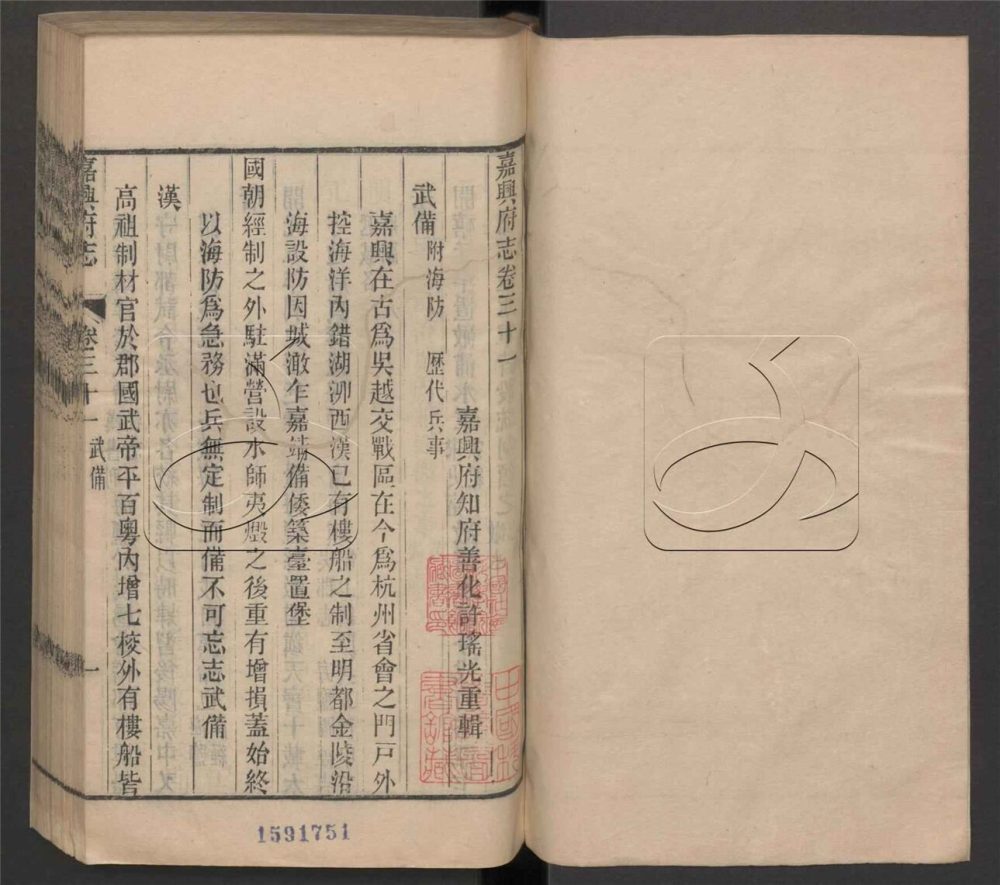 嘉興府志卷三十一
嘉興府知府善化許瑤光重輯
武備 附海防 歷代兵事
嘉興在古爲吳越交戰區在今爲杭州省會之門戸外
控海洋內錯湖泖西漢已有樓船之制至明都金陵沿
海設防因城澉乍嘉靖備倭築臺置堡
國朝經制之外駐滿營設水師夷燬之後重有增損蓋始終
以海防爲急務也兵無定制而備不可忘志武備
漢
高祖制材官於郡國武帝平百粵內增七校外有樓船皆
嘉興府志 卷三十一 武備 一
1591751